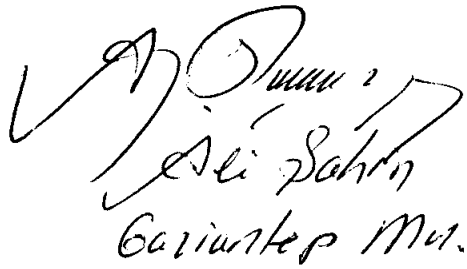 Ali Şahin
Gaziantep Mv.